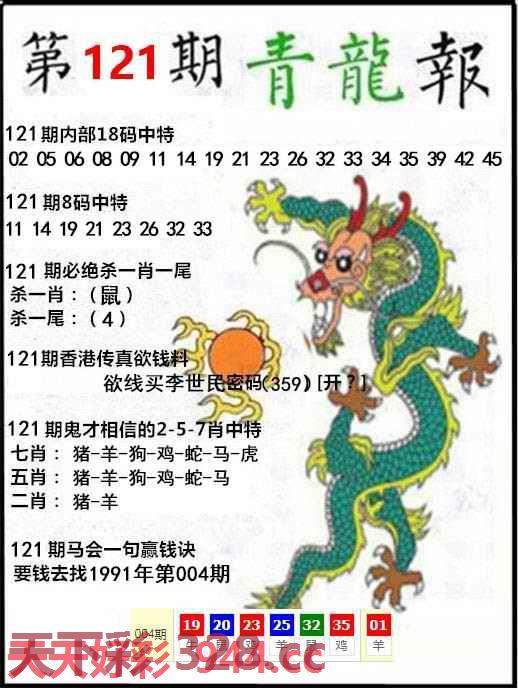 第121期青龍報
121期内部18码中特
02 05 06 08 09 11 14 19 21 23 26 32 33 34 35 39 42 45
121期8码中特
11 14 19 21 23 26 32 33
121期必绝杀一肖一尾
杀一肖：（鼠）
杀一尾：（4）
121期香港传真欲钱料
欲线买李世民密码(359)[开？]
121期鬼才相信的2-5-7肖中特
七肖：猪-羊-狗-鸡-蛇-马-虎
五肖：猪-羊-狗-鸡-蛇-马
二肖：猪-羊
121期马会一句赢钱诀
要钱去找1991年第004期
004期 19 20 23 25 32 35 01
鸡 羊 鼠 鸡 羊
天天好彩3928.cc